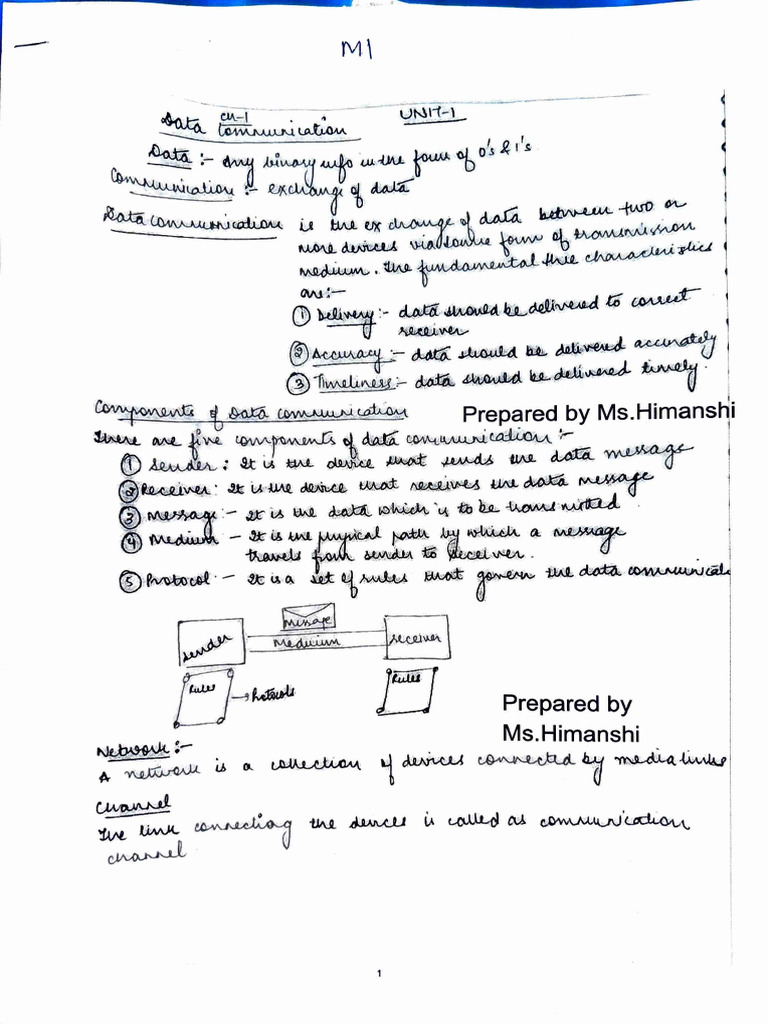 M1
CH-1 UNIT-1
Data Communication
Data :- Any binary info in the form of 0's & 1's
Communication :- exchange of data
Data communication is the exchange of data between two or
more devices via some form of transmission
medium. The fundamental three characteristics
are:-
① Delivery :- data should be delivered to correct
receiver
② Accuracy :- data should be delivered accurately
③ Timeliness :- data should be delivered timely.
Components of Data communication Prepared by Ms.Himanshi
There are five components of data communication :-
① Sender : It is the device that sends the data message
② Receiver : It is the device that receives the data message
③ Message :- It is the data which is to be transmitted
④ Medium - It is the physical path by which a message
travels from sender to receiver.
⑤ Protocol - It is a set of rules that govern the data communicat
Message
Sender Medium Receiver
Rules → Protocols Rules
Prepared by
Ms.Himanshi
Network :-
A network is a collection of devices connected by media links
Channel
The link connecting the devices is called as communication
channel
1